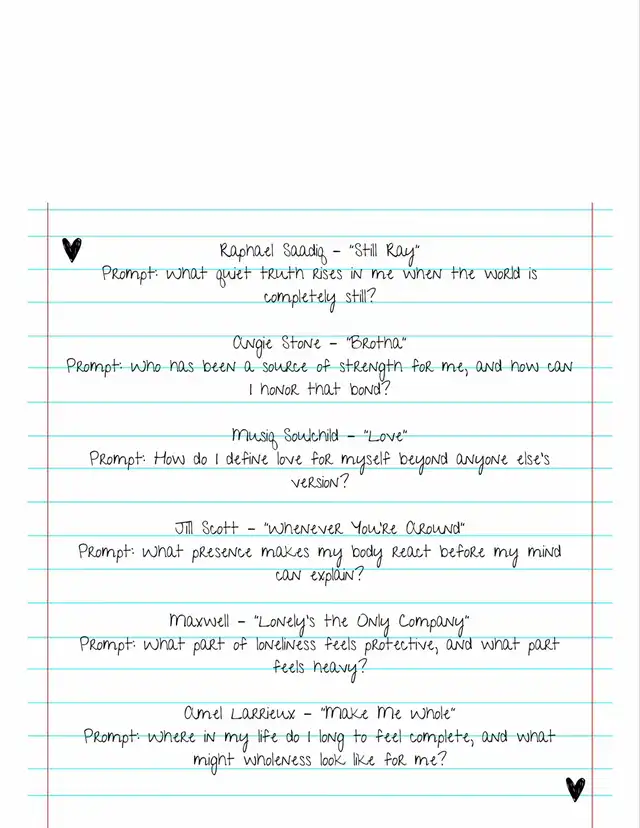 Raphael Saadiq - "Still Ray"
Prompt: What quiet truth rises in me when the world is
completely still?
Angie Stone - "Brotha"
Prompt: Who has been a source of strength for me, and how can
I honor that bond?
Musiq Soulchild - "Love"
Prompt: How do I define love for myself beyond anyone else's
version?
Jill Scott - "Whenever You're Around"
Prompt: What presence makes my body react before my mind
can explain?
Maxwell - "Lonely's the Only Company"
Prompt: What part of loneliness feels protective, and what part
feels heavy?
Amel Larrieux - "Make Me Whole"
Prompt: Where in my life do I long to feel complete, and what
might wholeness look like for me?